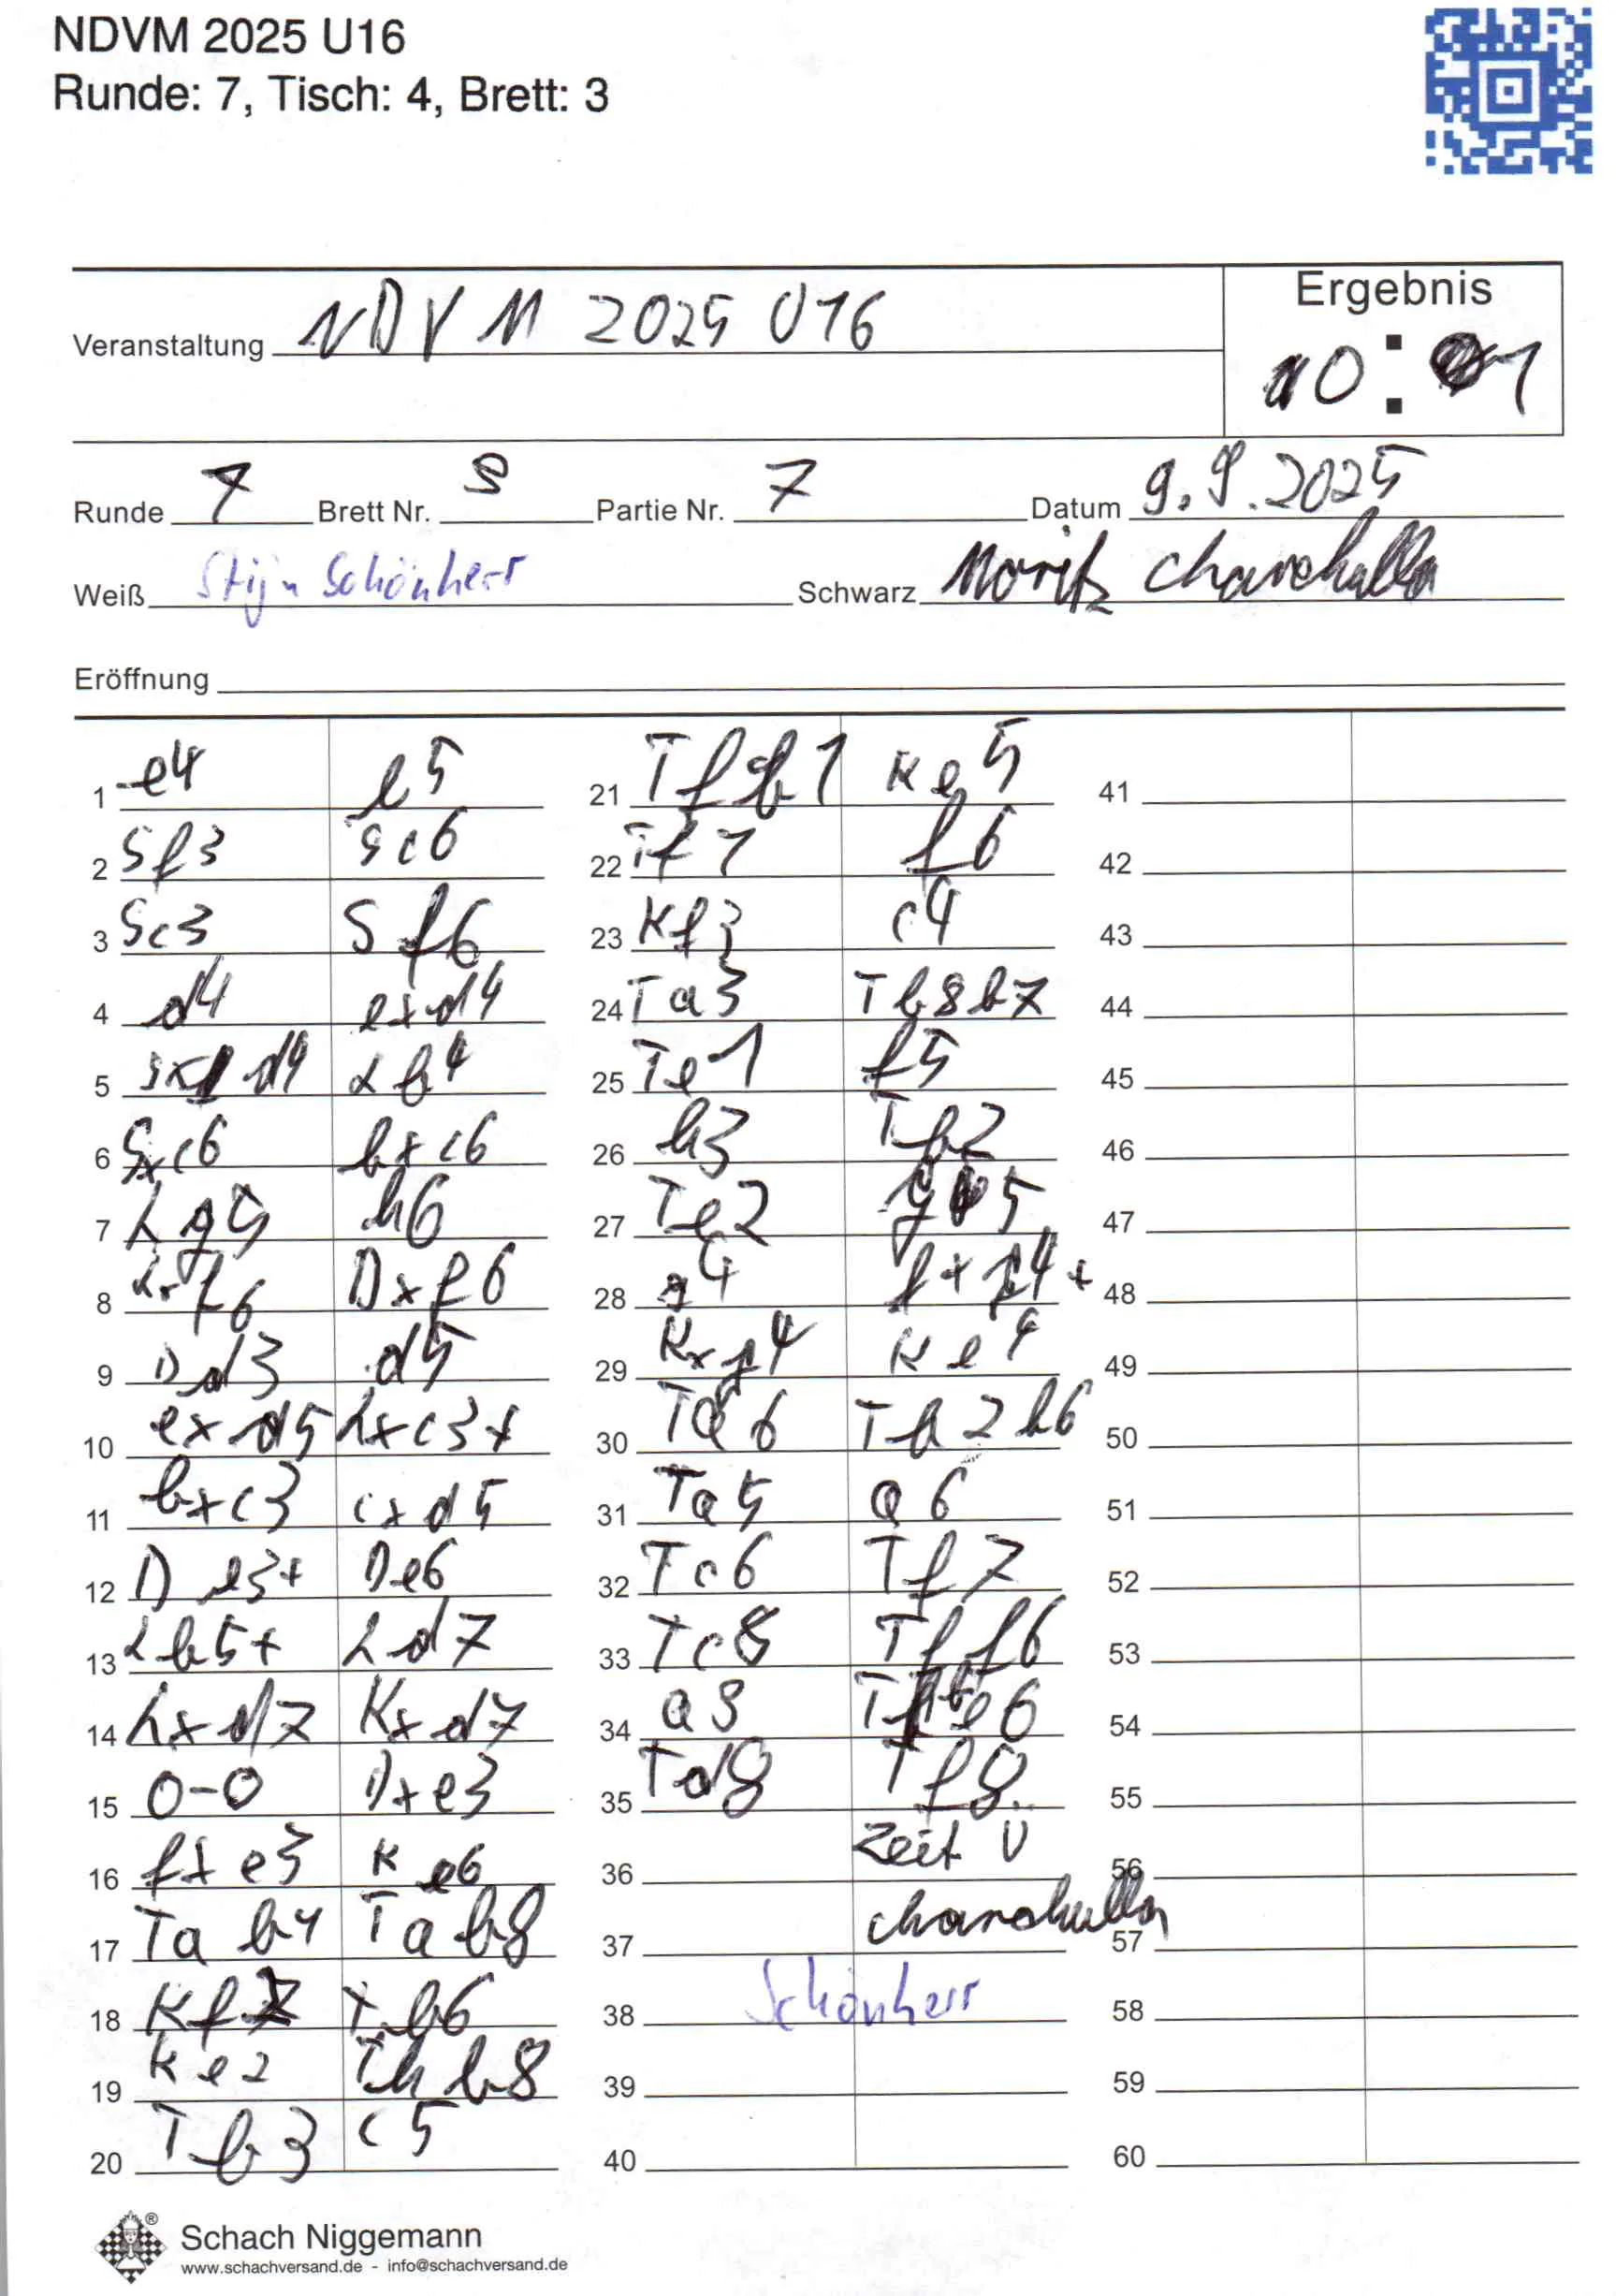 NDVM 2025 U16
Runde: 7, Tisch: 4, Brett: 3
Ergebnis
Veranstaltung NDVM 2025 U16
0 : 1
Runde 7 Brett Nr. 3 Partie Nr. 7 Datum 9.9.2025
Weiß Stijn Schönherr Schwarz Moritz
Eröffnung
1 e4 e5
2 Sf3 Sc6
3 Sc3 Sf6
4 d4 exd4
5 Sxd4 Lb4
6 Sxc6 bxc6
7 Lg5 h6
8 Lxf6 Dxf6
9 Dd3 d5
10 exd5 Lxc3+
11 bxc3 cxd5
12 De3+ De6
13 Lb5+ Ld7
14 Lxd7 Kxd7
15 0-0 Dxe3
16 fxe3 Ke6
17 Tab1 Tab8
18 Kf2 Tb6
19 Ke2 Thb8
20 Tb3 c5
21 Tfb1 Ke5
22 Tf1 f6
23 Kf3 c4
24 Ta3 Tb8b7
25 Te1 f5
26 h3 Tb2
27 Te2 g5
28 g4 fxg4+
29 Kxg4 Ke4
30 Ta6 Tb2b6
31 Ta5 a6
32 Tc6 Tf7
33 Tc8 Tff6
34 a3 Te6
35 Td8 Tf8
36 Zeit Ü
37
38 Schönherr
39
40
41
42
43
44
45
46
47
48
49
50
51
52
53
54
55
56
57
58
59
60
Schach Niggemann
www.schachversand.de - info@schachversand.de